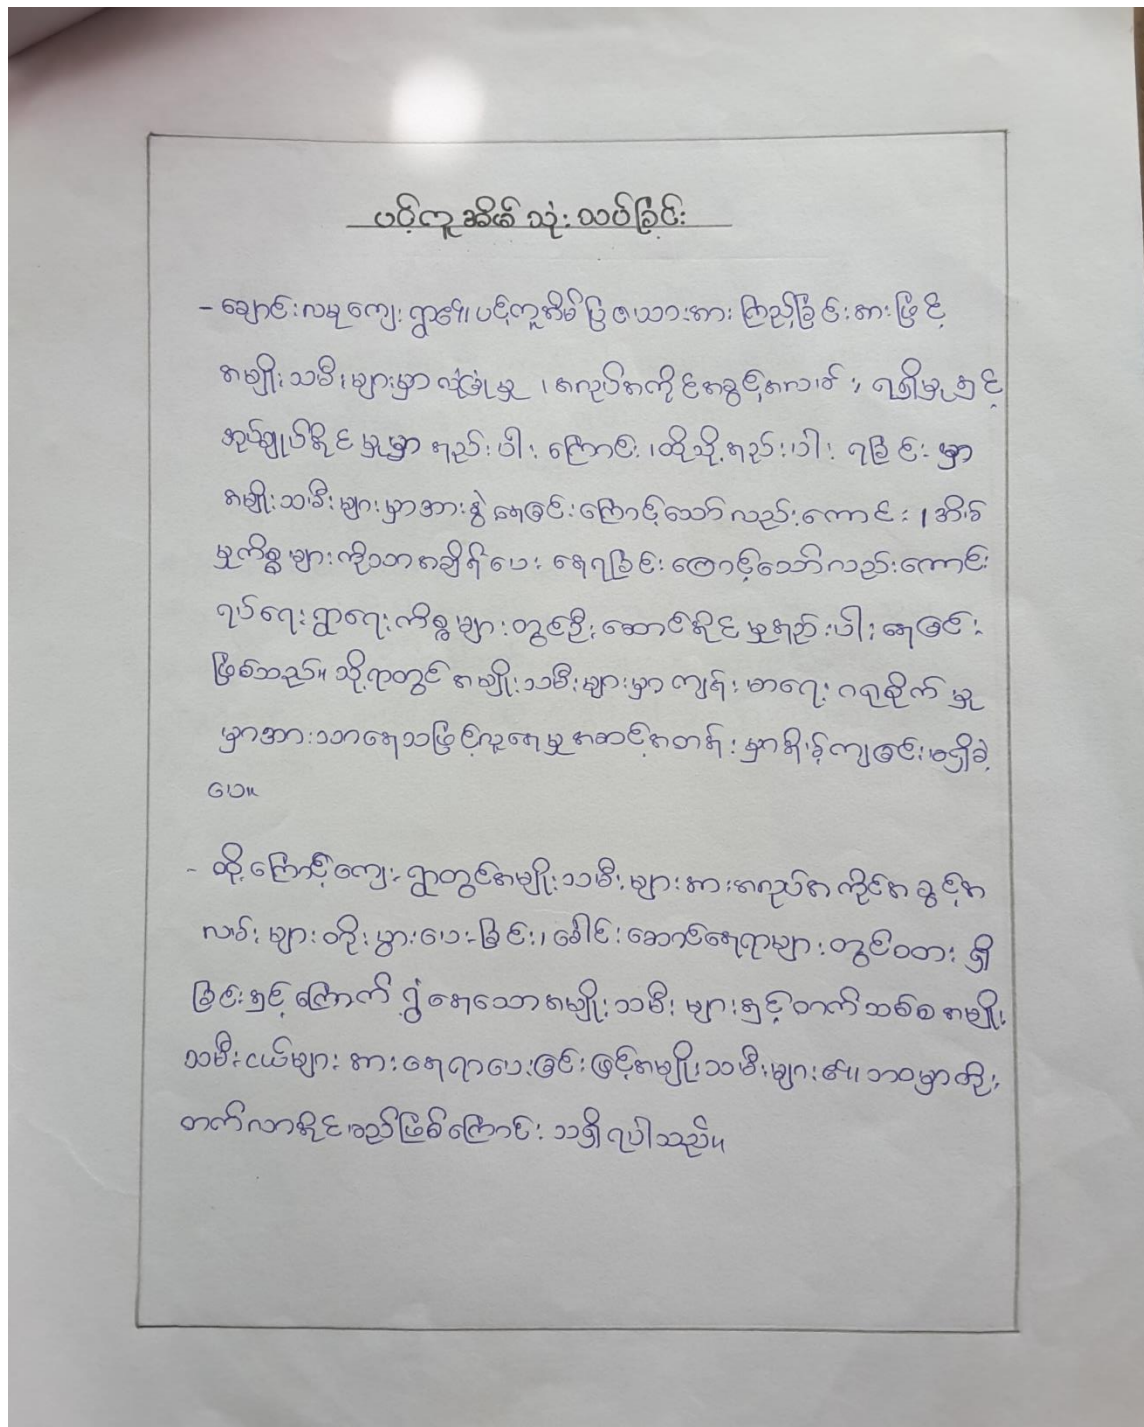 ပင့်ကူအိမ်သုံးသပ်ခြင်း
- ချောင်းလမုကျေးရွာ၏ပင့်ကူအိမ်ပြဇယားအားကြည့်ခြင်းအားဖြင့်
အမျိုးသမီးများမှာလုံခြုံမှု၊အလုပ်အကိုင်အခွင့်အလမ်းရရှိမှုနှင့်
အုပ်ချုပ်နိုင်မှုမှာနည်းပါးကြောင်း၊ထိုသို့နည်းပါးရခြင်းမှာ
အမျိုးသမီးများမှာအားနွဲ့နေခြင်းကြောင့်သော်လည်းကောင်း၊အိမ်
မှုကိစ္စများကိုသာအချိန်ပေးနေရခြင်းကြောင့်သော်လည်းကောင်း
ရပ်ရေးရွာရေးကိစ္စများတွင်ဦးဆောင်နိုင်မှုနည်းပါးနေခြင်း
ဖြစ်သည်။သို့ရာတွင်အမျိုးသမီးများမှာကျန်းမာရေးဂရုစိုက်မှု
မှာအားသာနေသဖြင့်လူနေမှုအဆင့်အတန်းမှာနိမ့်ကျခြင်းမရှိခဲ့
ပေ။
- ထို့ကြောင့်ကျေးရွာတွင်အမျိုးသမီးများအားအလုပ်အကိုင်အခွင့်အ
လမ်းများတိုးပွားပေးခြင်း၊ခေါင်းဆောင်နေရာများတွင်ထားရှိ
ခြင်းနှင့်ကြောက်ရွံ့နေသောအမျိုးသမီးများနှင့်တက်သစ်စအမျိုး
သမီးငယ်များအားနေရာပေးခြင်းဖြင့်အမျိုးသမီးများ၏ဘဝမှာတိုး
တက်လာနိုင်မည်ဖြစ်ကြောင်းသိရှိရပါသည်။